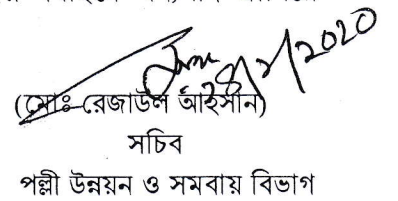 ২৪/২/2020
(মোঃ রেজাউল আহসান)
সচিব
পল্লী উন্নয়ন ও সমবায় বিভাগ